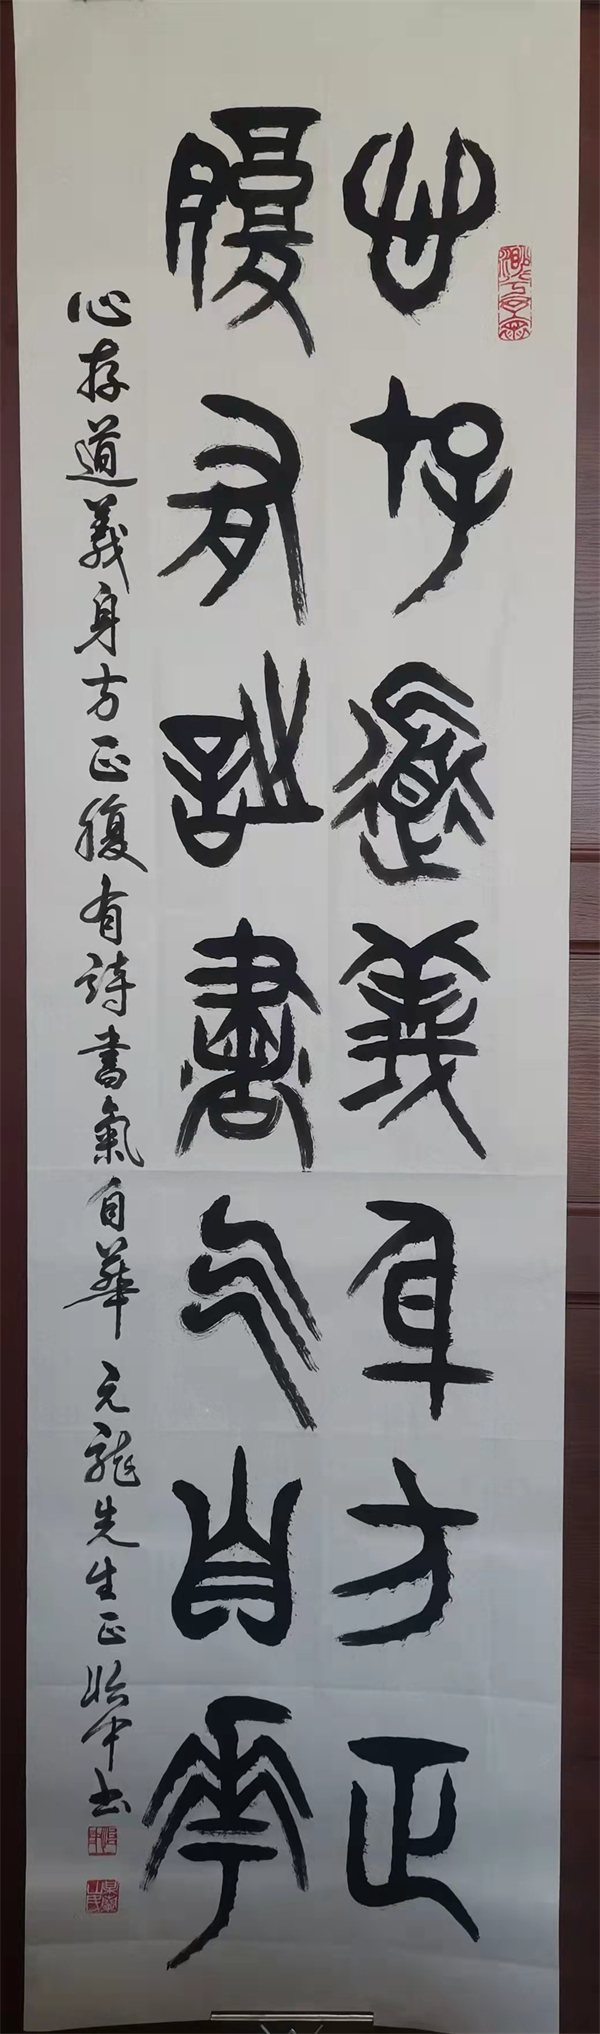 心存道義身方正
腹有詩書气自華
心存道義身方正腹有詩書氣自華 元龍先生正 中书